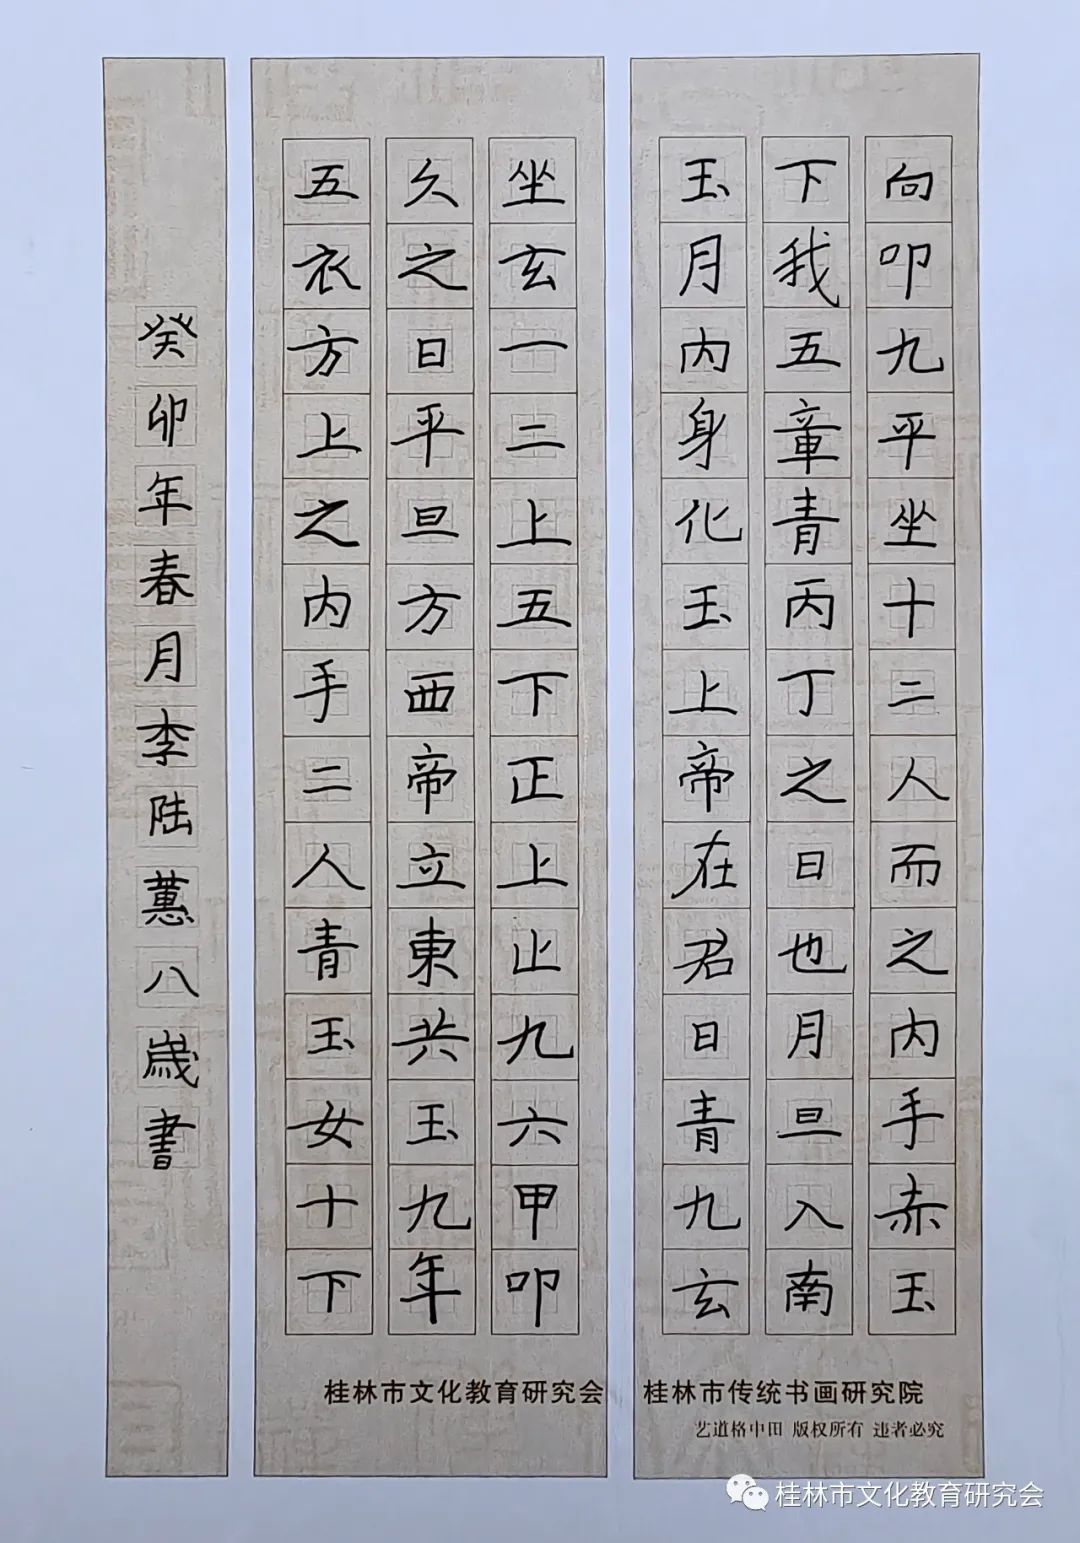 向叩九平坐十二人而之内手赤玉
下我五章青丙丁之日也月旦入南
玉月内身化玉上帝在君日青九玄
坐玄一二上五下正上止九六甲叩
久之日平旦方西帝立東共玉九年
五衣方上之内手二人青玉女十下
癸卯年春月李陆蕙八歲書
桂林市文化教育研究会
桂林市传统书画研究院
艺道格中田 版权所有 违者必究
桂林市文化教育研究会